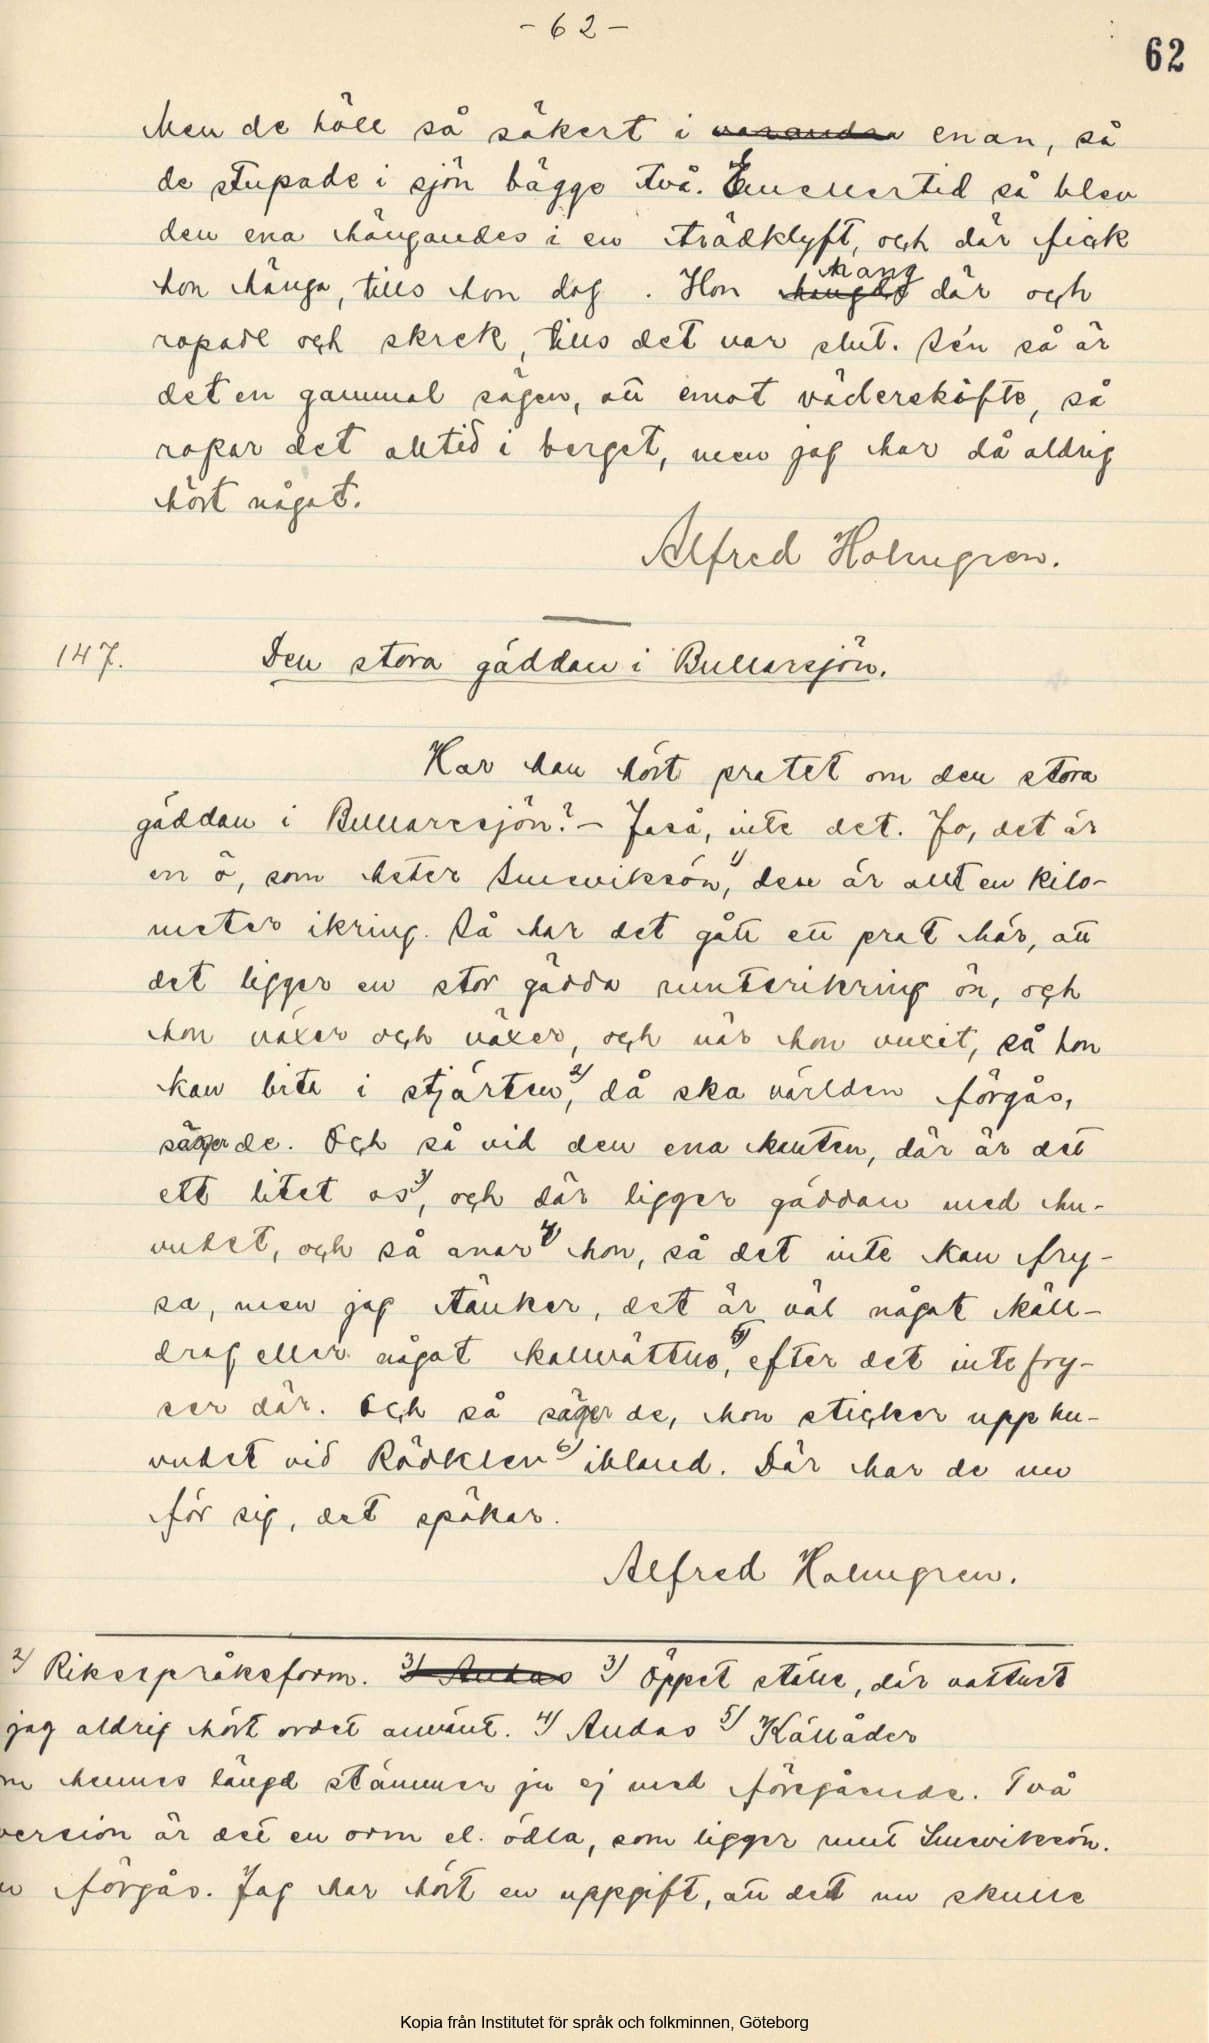 - 62 -
62
Men de höll så säkert i varandra enan, så
de stupade i sjön bägge två. Emellertid så blev
den ena hängandes i en trädklyft, och där fick
hang
hon hänga, tills hon dog. Hon hängde där och
ropade och skrek, tills det var slut. Sén så är
det en gammal sägen, att emot väderskifte, så
ropar det alltid i berget, men jag har då aldrig
hört något.
Alfred Holmgren.
147. Den stora gäddan i Bullarsjön.
Har han hört pratet om den stora
gäddan i Bullaresjön? - Jaså, inte det. Jo, det är
en ö, som heter Smevikeön,1) den är allt en kilo-
meter ikring. Så har det gått ett prat här, att
det ligger en stor gädda runterikring ön, och
hon växer och växer, och när hon vuxit, så hon
kan bita i stjärten,2) då ska världen förgås,
säger de. Och så vid den ena kanten, där är det
ett litet os3), och där ligger gäddan med hu-
vudet, och så anar4) hon, så det inte kan fry-
sa, men jag tänker, det är väl något käll-
drag eller något kallvättns,5) efter det inte fry-
ser där. Och så säger de, hon sticker upp hu-
vudet vid Rödklev6) ibland. Där har de nu
för sig, det spökar.
Alfred Holmgren.
2) Riksspråksform. 3) Andas 3) Öppet ställe, där vattnet
jag aldrig hört ordet använt. 4) Andas 5) Källåder
m hennes längd stämmer ju ej med föregående. Två
version är det en orm el. ödla, som ligger runt Smevikeön.
n förgås. Jag har hört en uppgift, att det nu skulle
Kopia från Institutet för språk och folkminnen, Göteborg